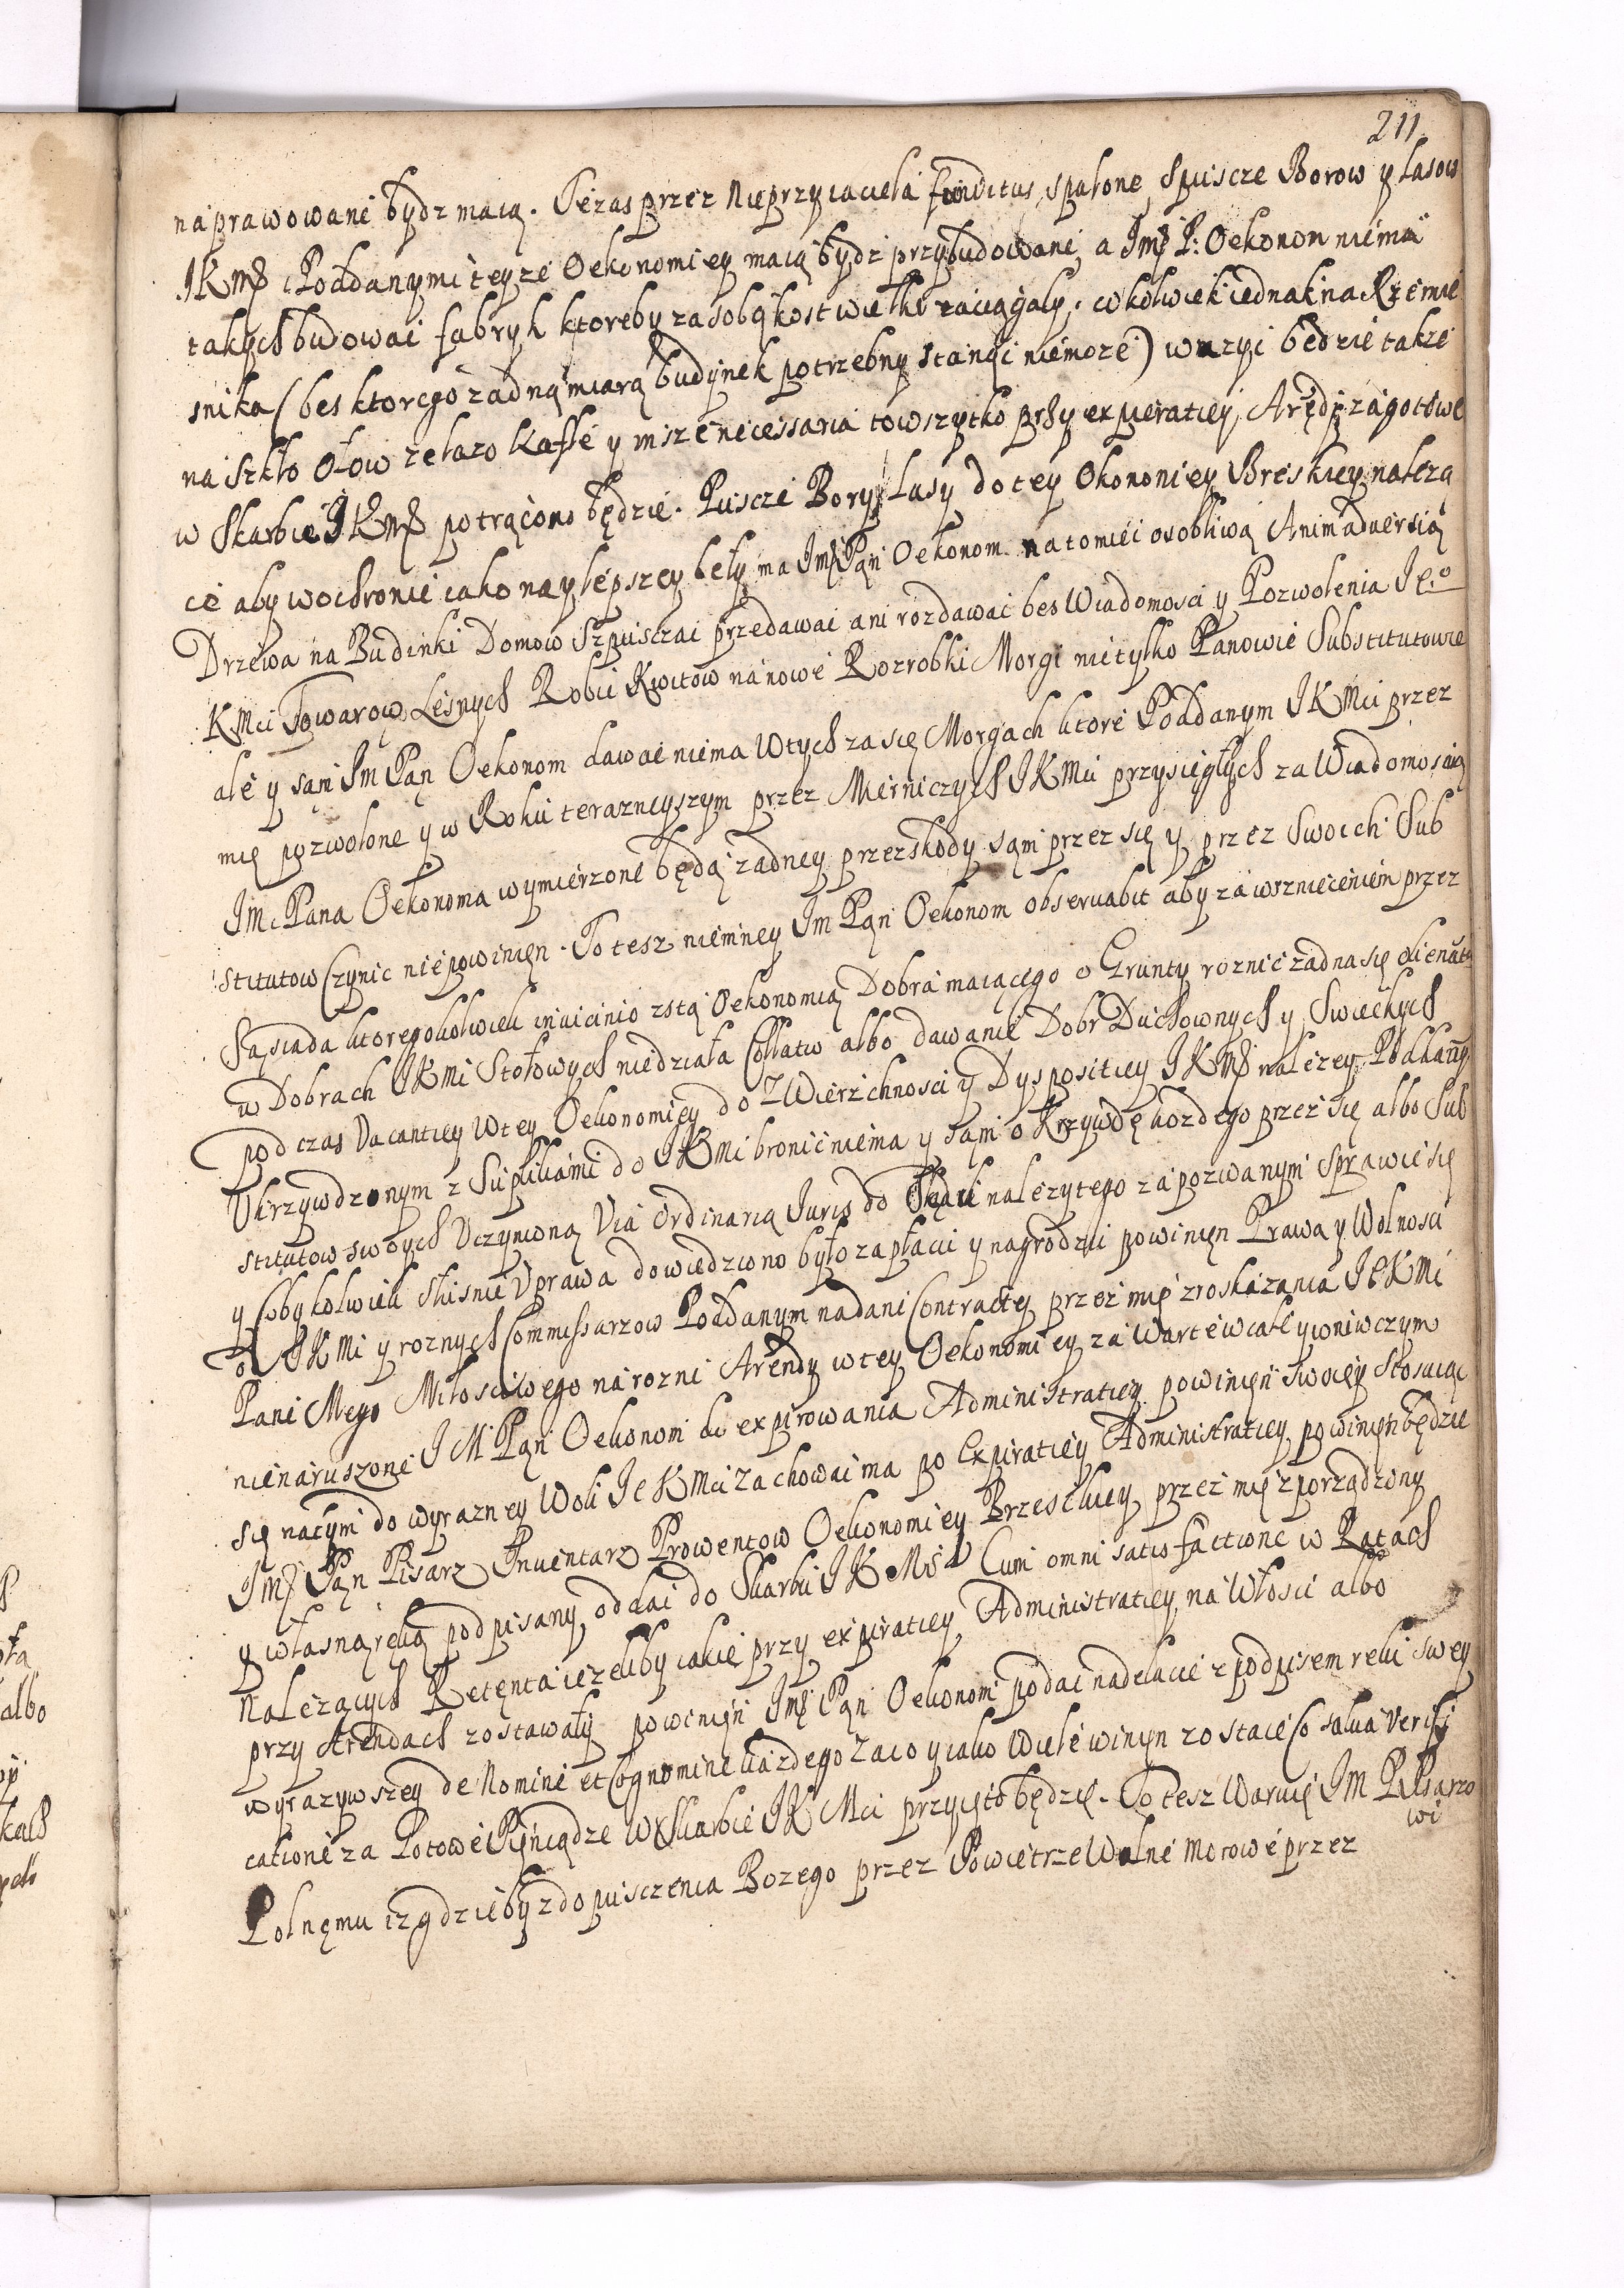 211
naprawowane bydz maią. Te zas przez Nieprzyiaciela funditus spalone, Spuscze Borow y Lasow
JKMści Poddanymi teyze Oekonomiey maią bydz przybudowane, a Jmść P: Oekonom niema
takych budowac fabryk ktoreby za sobą kost wielki zaciągały, cokolwiek iednak na Rzemie
snika (bes ktorego zadną miarą budynek potrzebny stanąc niemoze) wazyi bedzie takze
na Szkło Ołow zelazo Kaffle y insze necessaria to wszytko przy expieratiey Arędy za gotowe
w Skarbie JKMści potrącono będzie. Puscze Bory Lasy do tey Okonomiey Breskiey nalezą
ce aby wochronie iako naylepszey beły ma Jmść Pąn Oekonom na tomiec osobliwą Animaduersią
Drzewa na Budinki Domow Szpusczai przedawai ani rozdawai bes Wiadomosci y Pozwolenia Jeo
KMci Towarow Lesnych Robic Kwitow na nowe Rozrobki Morgi nie tylko Panowie Substitutowie
ale y sąm Jm Pąn Oekonom dawac niema Wtych zasię Morgach ktore Poddanym JKMci przez
mię pozwolone y w Roku teraznieyszym przez Mierniczych JKMci przysięgłych za Wiadomoscią
JMci Pana Oekonoma wymierzone będą zadney przeszkody sąm przez się y przez Swoich Sub
stitutow Czynic niepowinięn. To tesz niemney Jm Pąn Oekonom obseruabit aby za wznieceniem przez
Sąsiada ktoregokolwiek inuicinio zstą Oekonomią Dobra maiącego o Grunty roznie zadna się alienata
w Dobrach JKMci Stołowych niedziała Collatio albo dawanie Dobr Duchownych y Swieckych
pod czas Vacantiey Wtey Oekonomiey do Zwierzchnosci y Dyspositiey JKMści nalezey Poddanym
Ukrzywdzonym z Suplikami do JKMci bronic niema y sąm o Krzywdę kozdego przez się albo Sub
stitutow swoych Uczynioną Via ordinaria Juris do Sądu nalezytego za pozwanym sprawie się
y Cobykolwiek słusnie Uprawa dowiedziono było zapłacic y nagrodzic powinięn Prawa y Wolnosci
od JKMci y roznych Commissarzow Poddanym nadane Contracty przez mię z roskazania JeKMci
Pana Mego Miłosciwego na rozne Arendy wtey Oekonomiey za Warte wcale ywniwczym
nienaruszone JM Pąn Oekonom do expirowania Administratiey powinięn swoiey stosuiąc
się natym do wyrazney Woli JeKMci zachowai ma po Expiratiey Administratiey powinięn będzie
Jmść Pąn Pisarz Inuentarz Prowentow Oekonomiey Brzeskiey przez mię zporządzony
y własną ręką podpisany oddai do Skarbu JKMści Cum omni satisfactione w Ratach
Nalezących Retęnta iezeliby iakie przy expiratiey Administratiey na Włosci albo
przy Arendach zostawały powinięn Jmść Pąn Oekonom podac nadekucie z podpisem reki swey
wyrazywszey de Nomine et Cognomine kazdego Zaco y iako Wiele winięn zostaie Co salua Verifi
catione za Gotowe Pieniądze W Skarbie JKMci przyięto będzie. To tesz Waruię JM P Pisarzo
wi
Polnęmu iz gdzieby zdopusczenia Bozego przez Powietrze Wolne Morowe przez